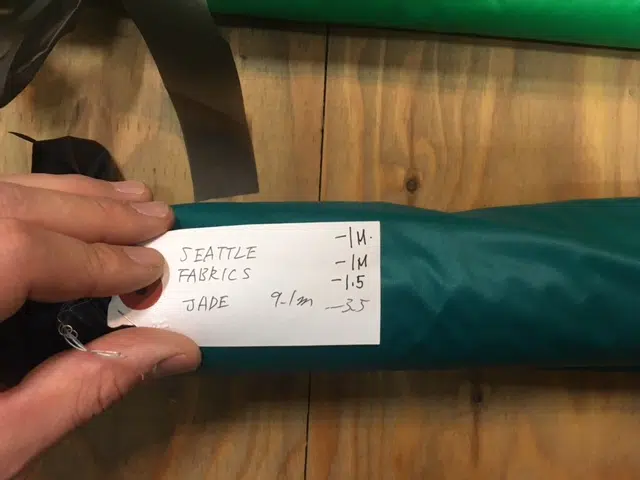 SEATTLE
FABRICS
JADE 9.1m
-1M.
-1M
-1.5
-3.5